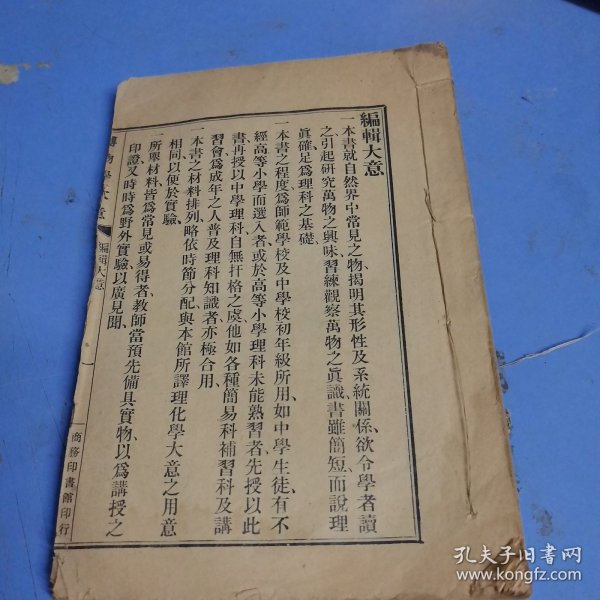 編輯大意
一本書就自然界中常見之物、揭明其形性及系統關係、欲令學者讀
之引起研究萬物之興味、習練觀察萬物之眞識、書雖簡短、而說理
眞確、足爲理科之基礎、
一本書之程度、爲師範學校及中學校初年級所用、如中學生徒、有不
經高等小學而選入者、或於高等小學理科未能熟習者、先授以此
書、再授以中學理科、自無扞格之處、他如各種簡易科補習科及講
習會、爲成年之人普及理科知識者、亦極合用、
一本書之材料排列、略依時節分配、與本館所譯理化學大意之用意
相同、以便於實驗、
一所舉材料、皆爲常見或易得者、教師當預先備具實物、以爲講授之
印證、又時時爲野外實驗、以廣見聞、
博物學大意
編輯大意
一
商務印書館印行
孔夫子旧书网
www.kongfz.com